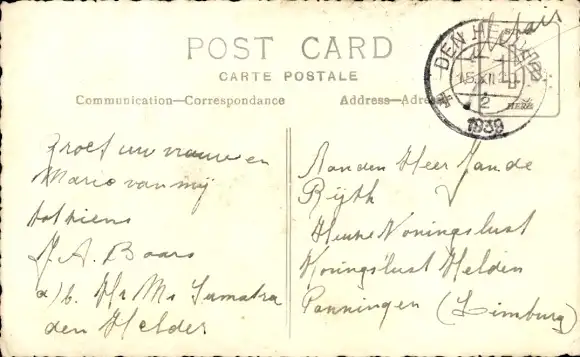 POST CARD
CARTE POSTALE
Communication—Correspondance
Address—Adresse
DEN HELDER
15 XII
2
1939
HERE
Groet uw vrouw en
Marie van mij
tot ziens
J. A. Baars
a/b. Hr Ms Sumatra
den Helder
Aan den Heer Jan de
Rijth
Koningslust
Koningslust Helden
Panningen (Limburg)